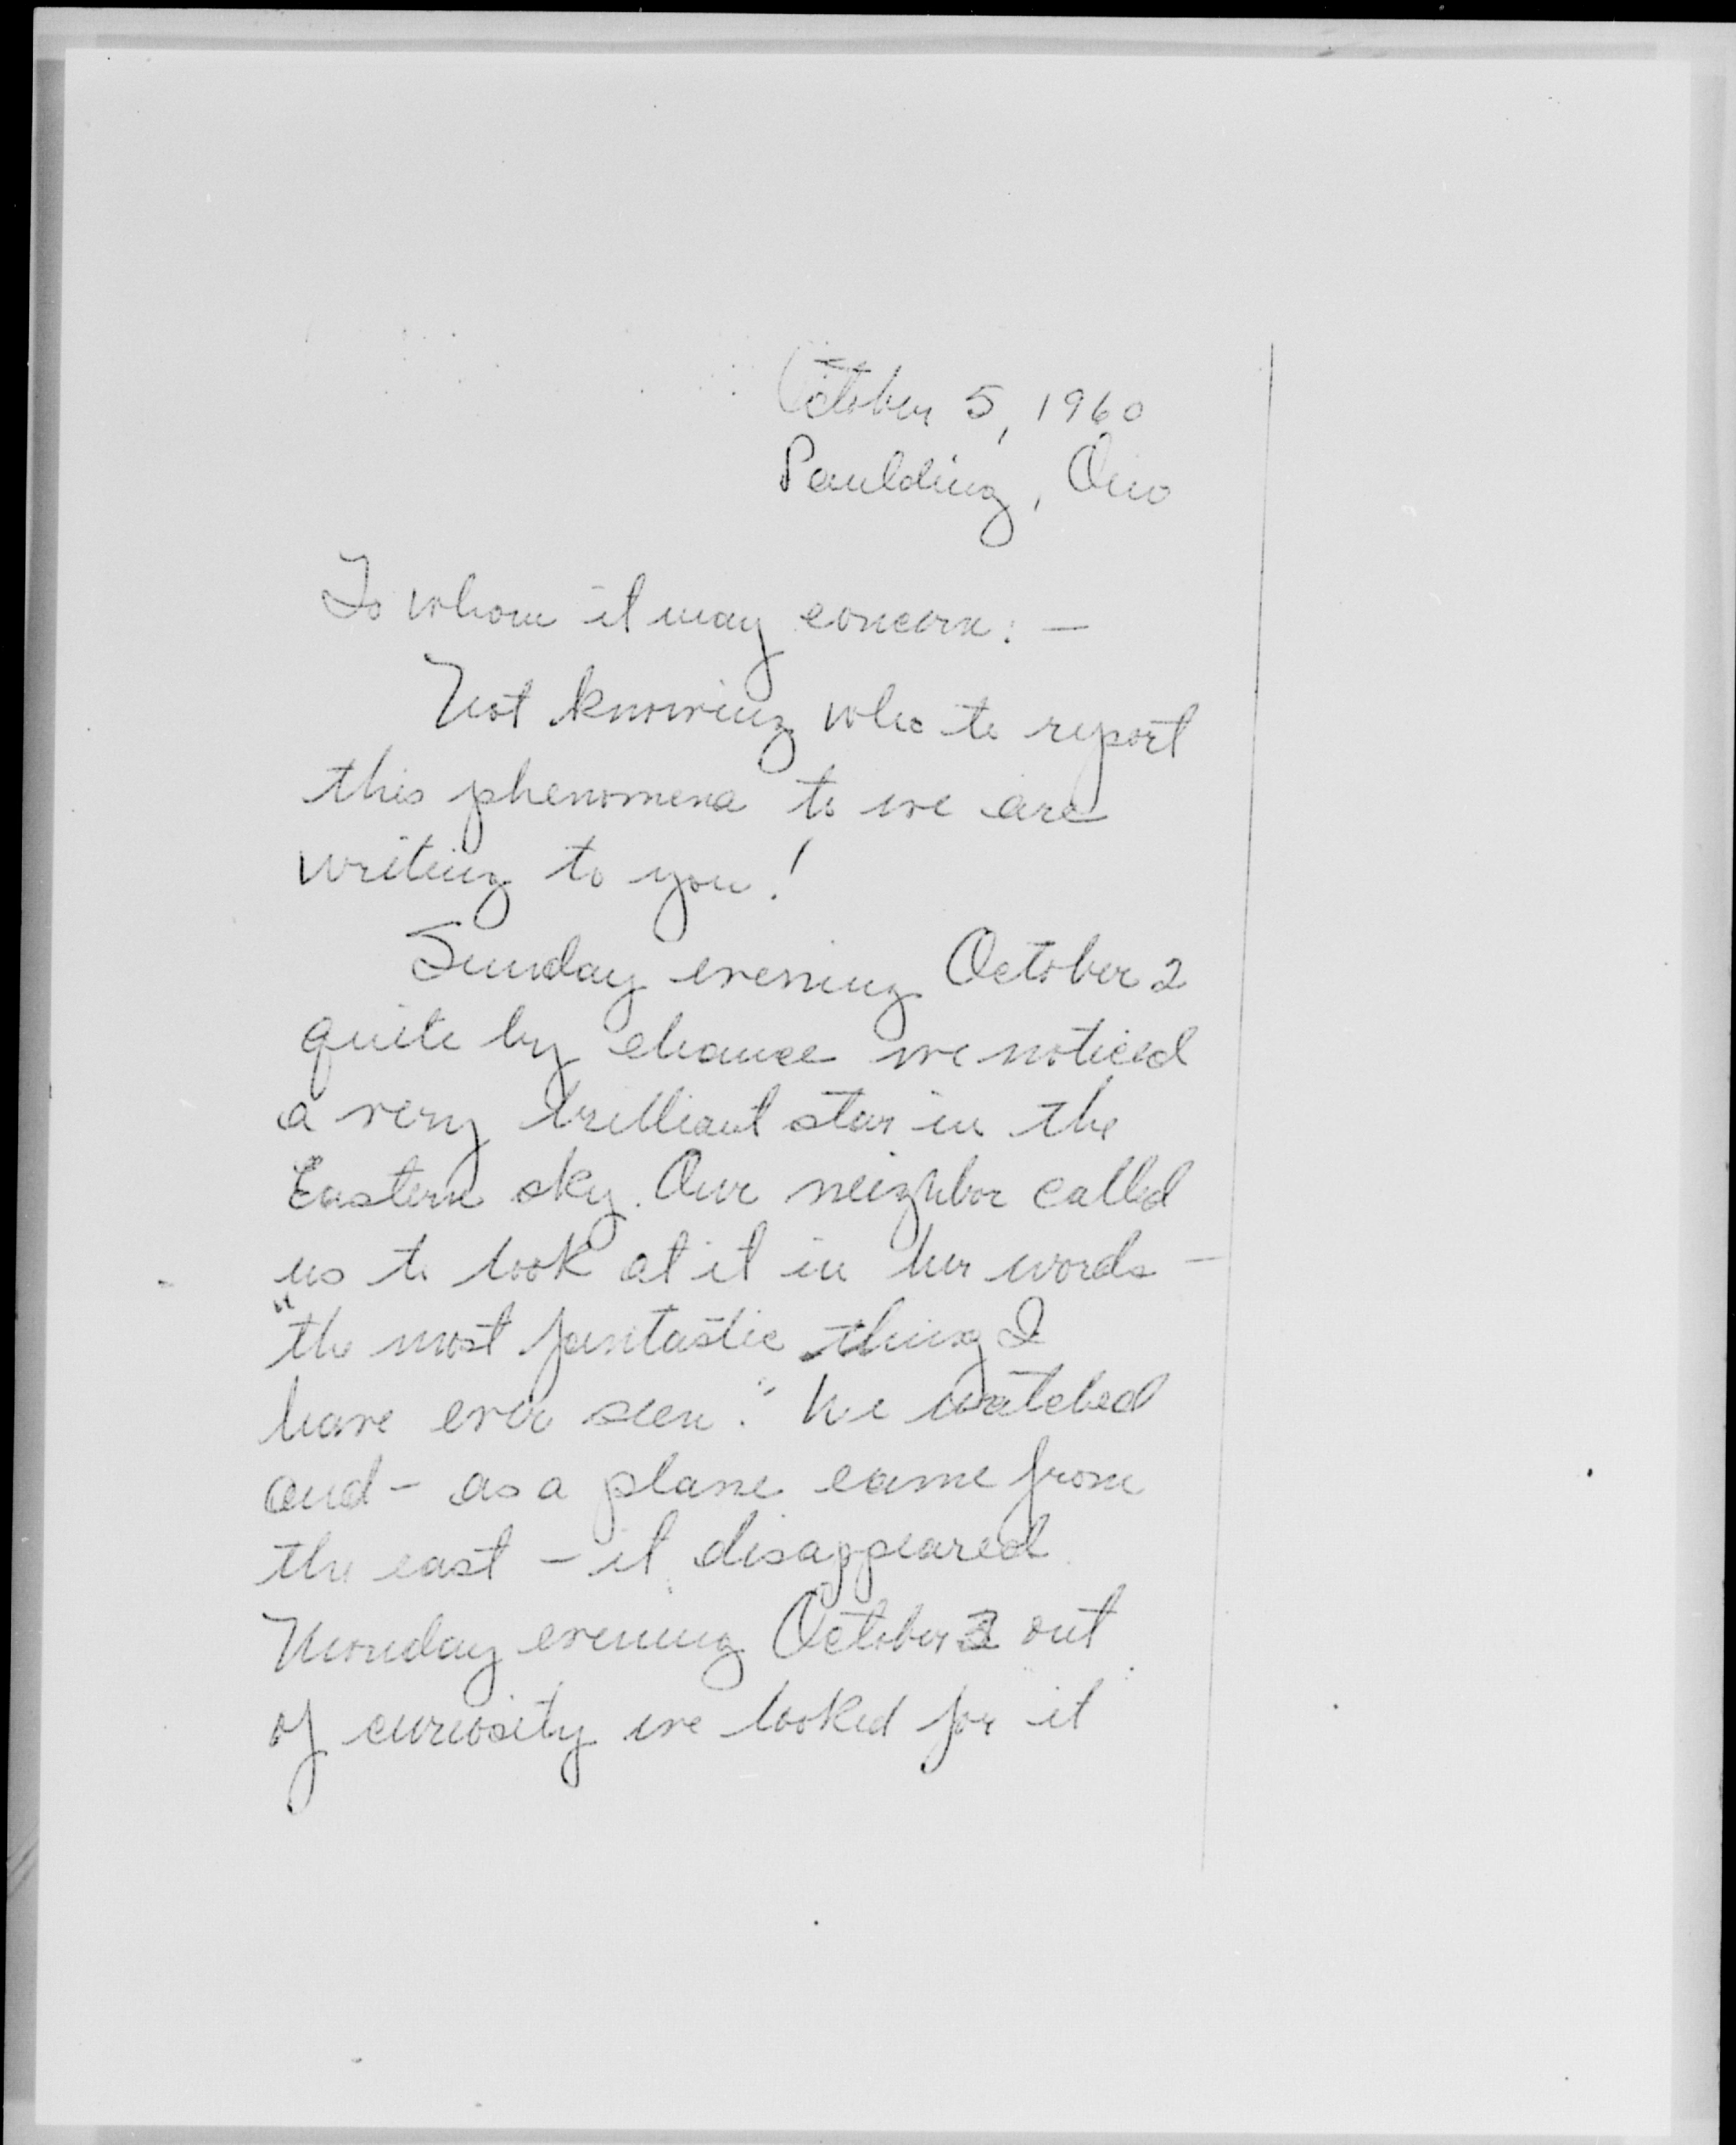 October 5, 1960
Paulding, Ohio
To whom it may concern: —
Not knowing who to report
this phenomena to we are
writing to you!
Sunday evening October 2
quite by chance we noticed
a very brilliant star in the
Eastern sky. Our neighbor called
us to look at it in her words —
"the most fantastic thing I
have ever seen." We watched
and - as a plane came from
the east - it disappeared
Monday evening October 3 out
of curiosity we looked for it